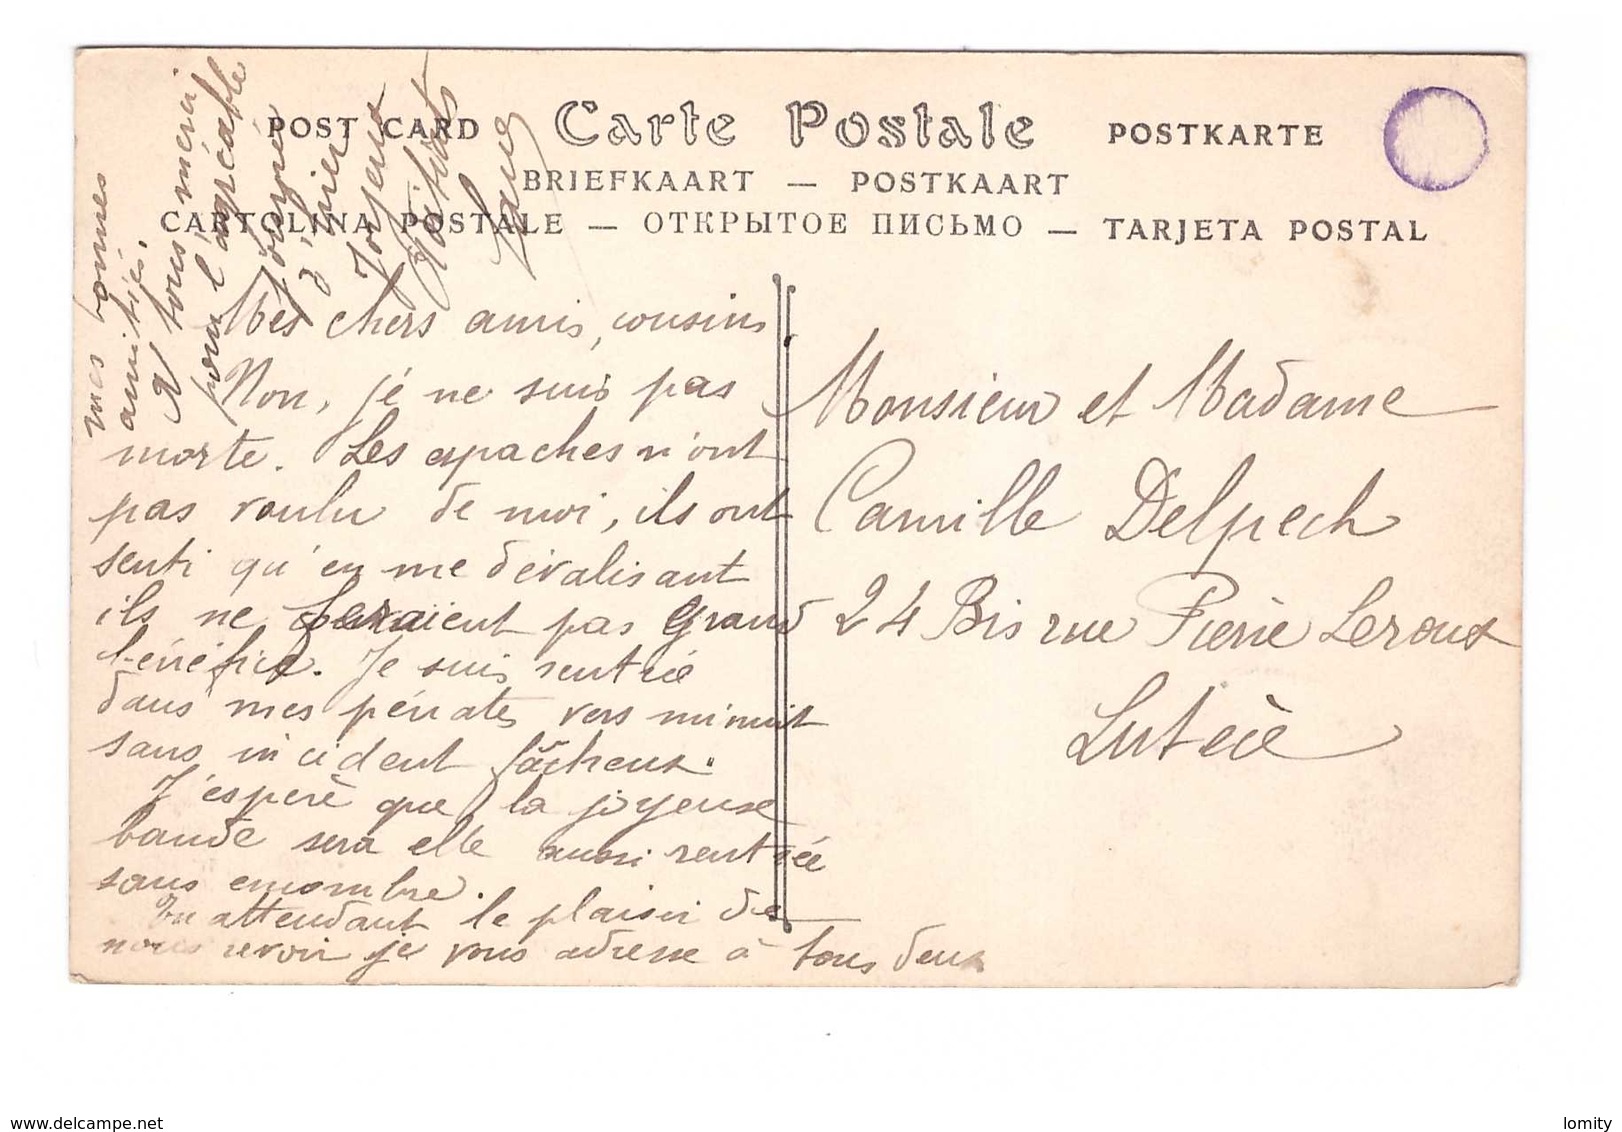 POST CARD Carte Postale POSTKARTE
BRIEFKAART — POSTKAART
CARTOLINA POSTALE — ОТКРЫТОЕ ПИСЬМО — TARJETA POSTAL
Mes chers amis, cousins
Non, je ne suis pas
morte. Les apaches n'ont
pas voulu de moi, ils ont
senti qu'en me dévalisant
ils ne feraient pas grand
bénéfice. Je suis rentrée
dans mes pénates vers minuit
sans incident fâcheux.
J'espère que la joyeuse
bande sera elle aussi rentrée
sans encombre.
En attendant le plaisir de
nous revoir je vous adresse à tous deux
mes bonnes
amitiés.
A tous merci
pour l'agréable
journée
d'hier
Joyeux
Monsieur et Madame
Camille Delpech
24 Bis rue Pierre Leroux
Lutèce
www.delcampe.net
lomity